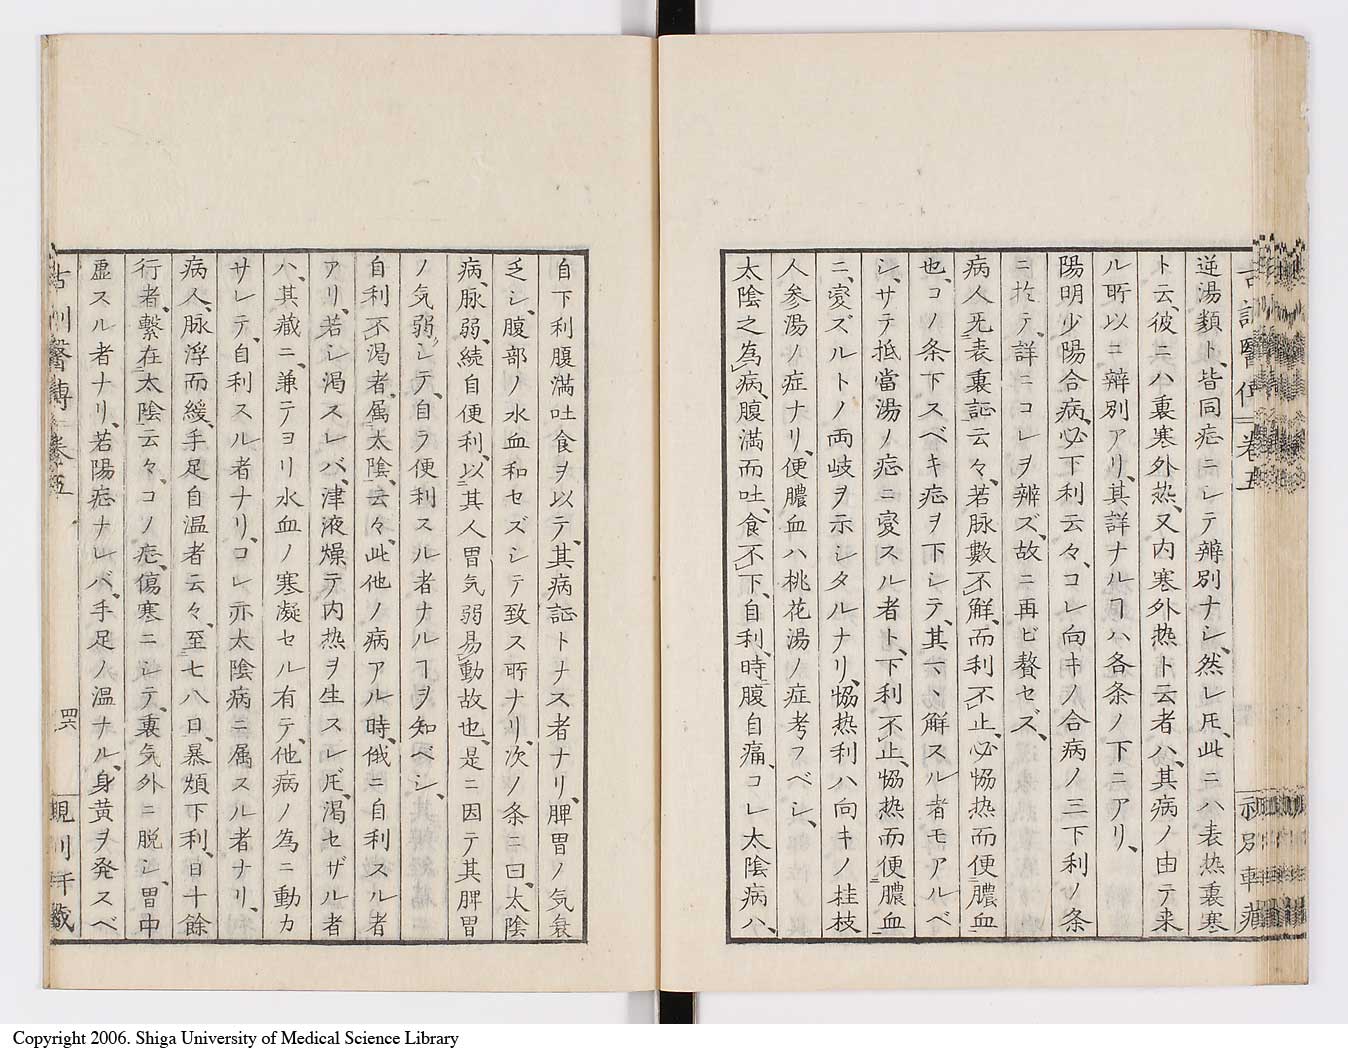 逆湯類ト、皆同症ニシテ辨別ナシ、然レ𪜈、此ニハ表热裏寒
ト云、彼ニハ裏寒外热、又内寒外热ト云者ハ、其病ノ由テ来
ル所以ニ辨別アリ、其詳ナルヿハ各条ノ下ニアリ、
陽明少陽合病、必下利云々、コレ向キノ合病ノ三下利ノ条
ニ於テ、詳ニコレヲ辨ズ、故ニ再ビ贅セズ、
病人旡表裏証云々、若脉數不解、而利不止、必恊热而便膿血
也、コノ条下スベキ症ヲ下シテ、其マヽ解スル者モアルベ
シ、サテ抵當湯ノ症ニ変スル者ト、下利不止、恊热而便膿血
ニ、変ズルトノ両岐ヲ示シタルナリ、恊热利ハ向キノ桂枝
人参湯ノ症ナリ、便膿血ハ桃花湯ノ症考フベシ、
太陰之為病、腹滿而吐、食不下、自利、時腹自痛、コレ太陰病ハ、
自下利腹満吐食ヲ以テ、其病証トナス者ナリ、脾胃ノ気衰
乏シ、腹部ノ水血和セズシテ致ス所ナリ、次ノ条ニ曰、太陰
病、脉弱、続自便利、以其人胃気弱易動故也、是ニ因テ其脾胃
ノ気弱シテ、自ラ便利スル者ナルヿヲ知ベシ、
自利不渇者、属太陰、云々、此他ノ病アル時、俄ニ自利スル者
アリ、若シ渇スレバ、津液燥テ内热ヲ生スレ𪜈、渇セザル者
ハ、其蔵ニ、兼テヨリ水血ノ寒凝セル有テ、他病ノ為ニ動カ
サレテ、自利スル者ナリ、コレ亦太陰病ニ属スル者ナリ、
病人、脉浮而緩、手足自温者云々、至七八日、暴煩下利、日十餘
行者、繋在太陰云々、コノ症、傷寒ニシテ、裏気外ニ脱シ、胃中
虚スル者ナリ、若陽症ナレバ、手足ノ温ナル、身黄ヲ発スベ
四六
Copyright 2006. Shiga University of Medical Science Library